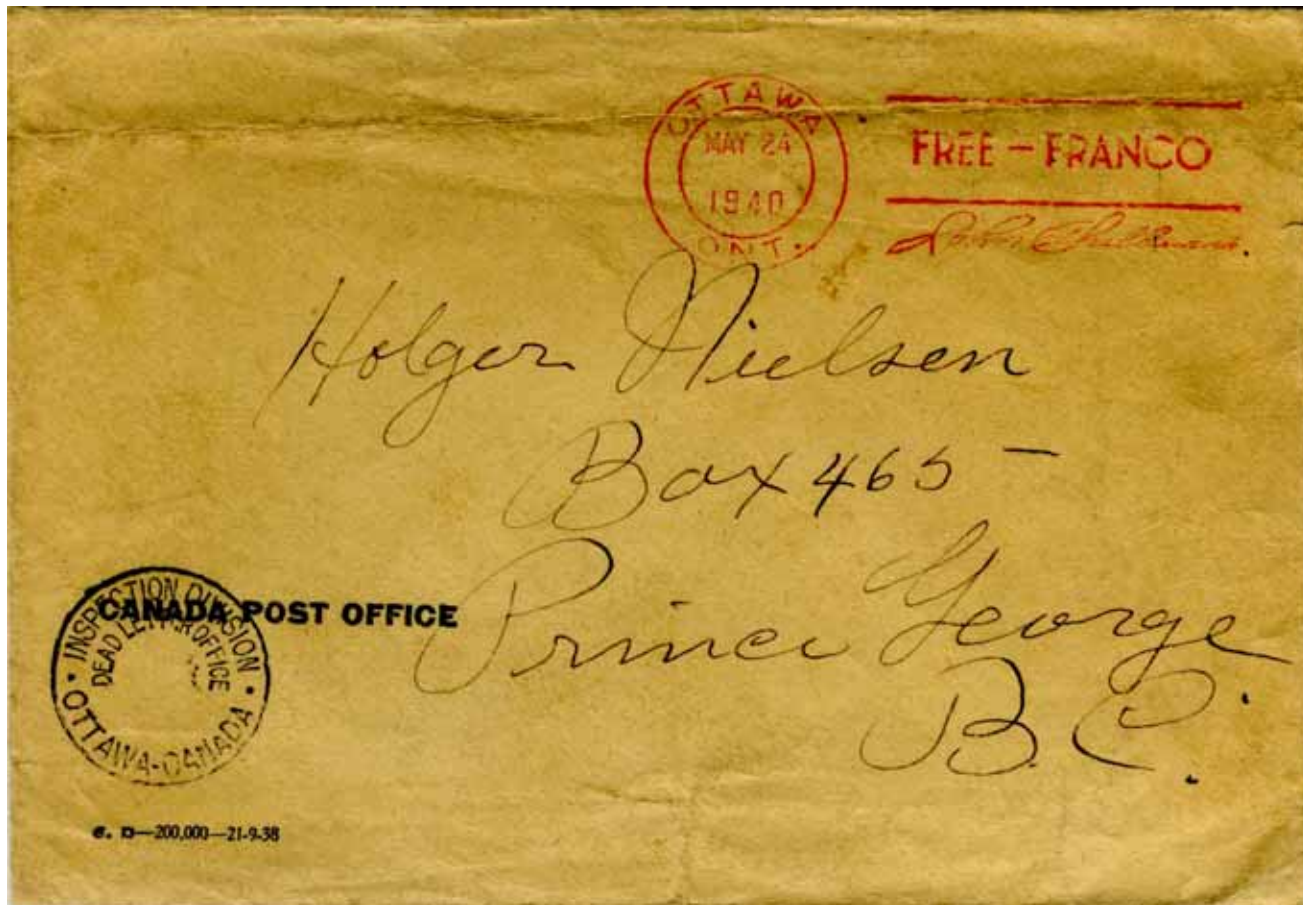 OTTAWA
MAY 24
1940
ONT.
FREE – FRANCO
Holger Nielsen
Box 465
Prince George
B.C.
CANADA POST OFFICE
• INSPECTION DIVISION •
DEAD LETTER OFFICE
OTTAWA-CANADA
D—200,000—21-9-38